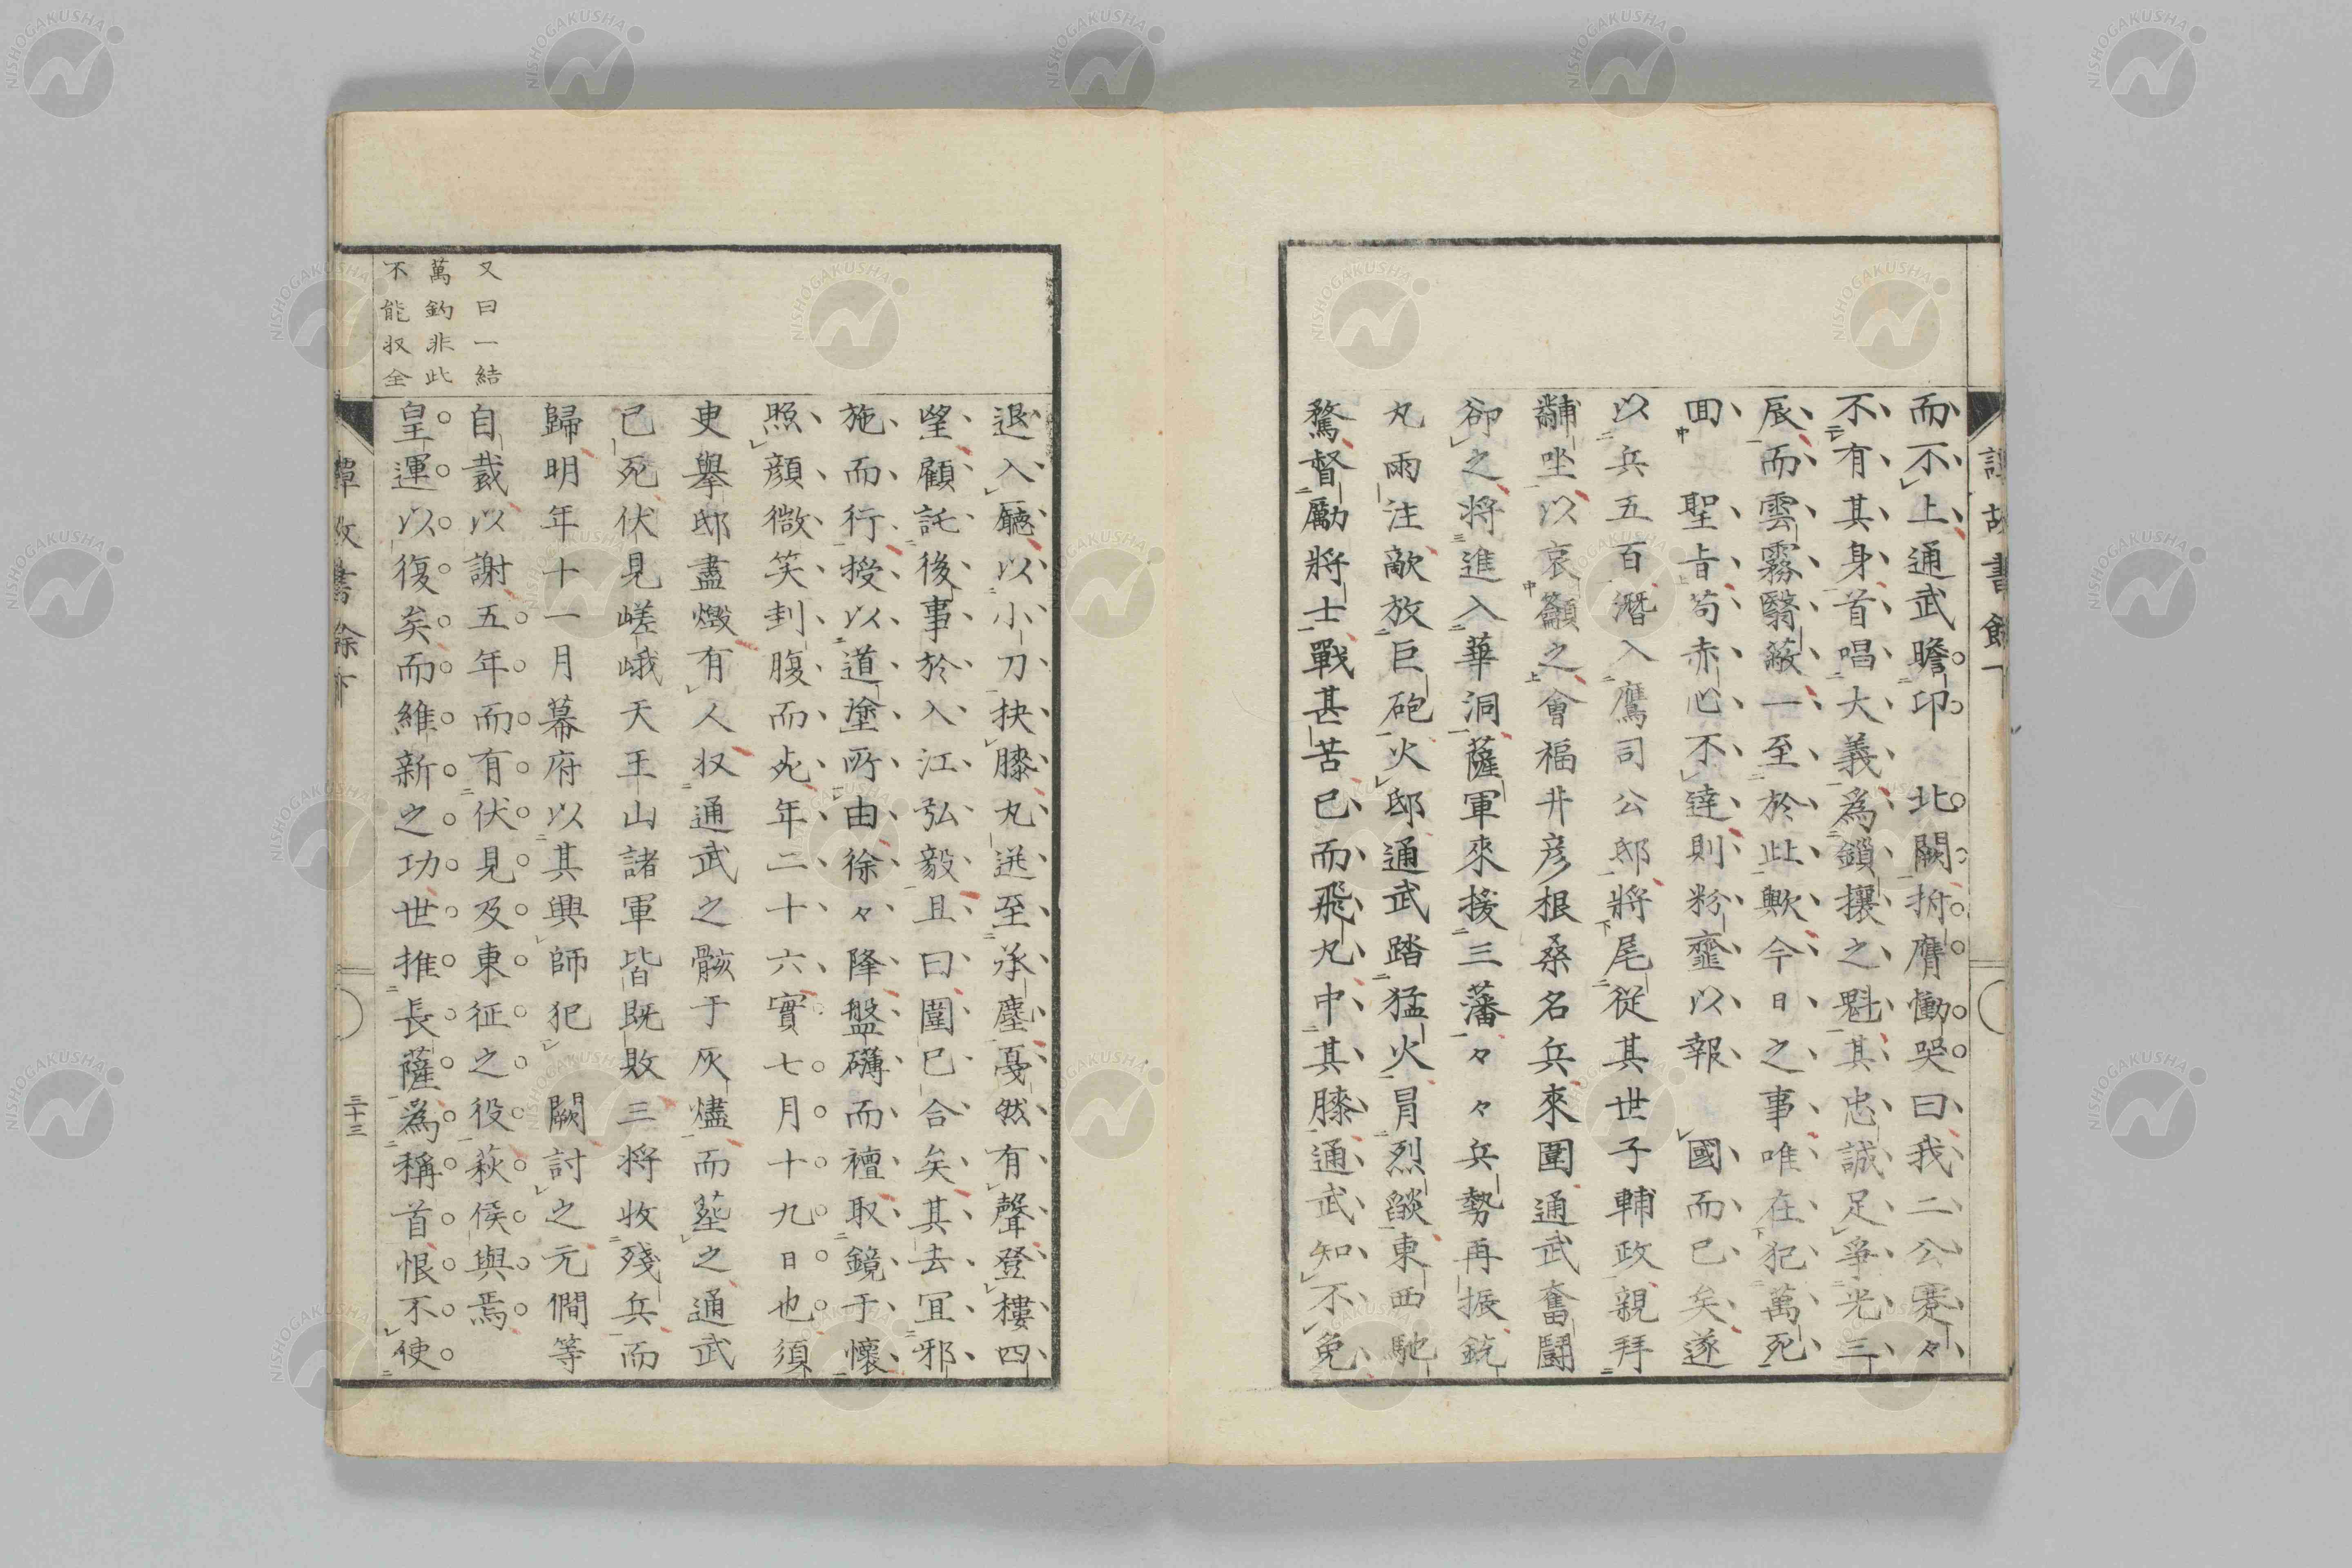 而不上通武瞻印　北闕拊膺慟哭曰我二公蹇々
不有其身首唱大義為鎖攘之魁其忠誠足爭光三
辰而雲霧翳蔽一至於此歟今日之事唯在犯萬死
回　聖旨苟赤心不達則粉虀以報　國而已矣遂
以兵五百潛入鷹司公邸將尾從其世子輔政親拜
黼坐以哀籲之會福井彦根桑名兵來圍通武奮鬪
卻之將進入華洞薩軍來援三藩々々兵勢再振銃
丸雨注敵放巨砲火邸通武踏猛火冒烈燄東西馳
騖督勵將士戰甚苦已而飛丸中其膝通武知不免
退入廳以小刀抉膝丸送至承塵戞然有聲登樓四
望顧託後事於入江弘毅且曰圍已合矣其去冝邪
施而行授以道塗所由徐々降盤礴而襢取鏡于懷
照顏微笑刲腹而死年二十六實七月十九日也須
臾擧邸盡燬有人収通武之骸于灰燼而葬之通武
已死伏見嵯峨天王山諸軍皆既敗三將收殘兵而
歸明年十一月幕府以其興師犯　闕討之元僴等
自裁以謝五年而有伏見及東征之役萩侯與焉
皇運以復矣而維新之功世推長薩為稱首恨不使
又曰一結
萬鈞非此
不能収全
三十三